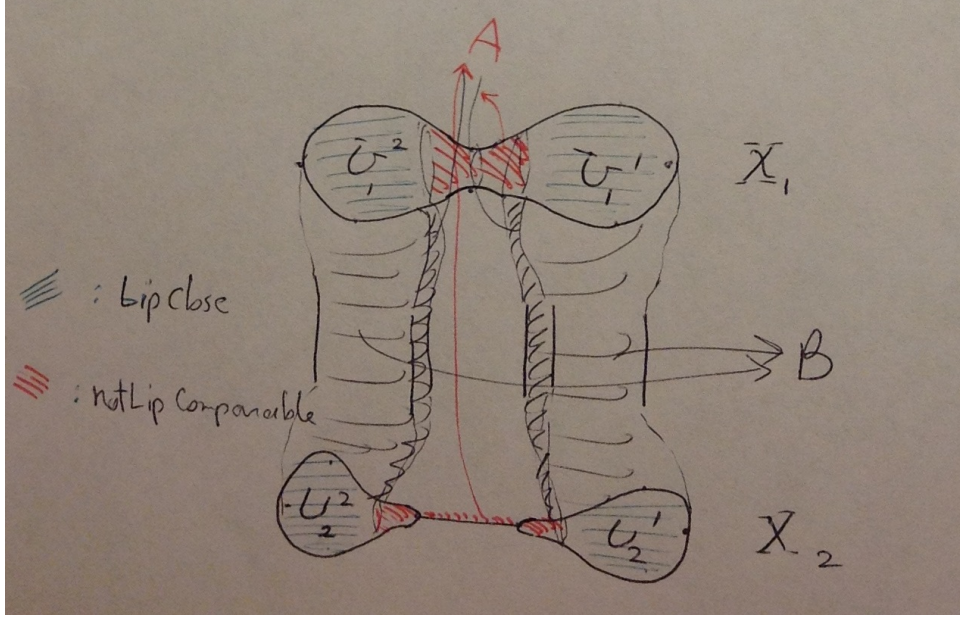 A
U₁² U₁¹ X₁
: Lip close
B
: not Lip Comparable
U₂² U₂¹ X₂